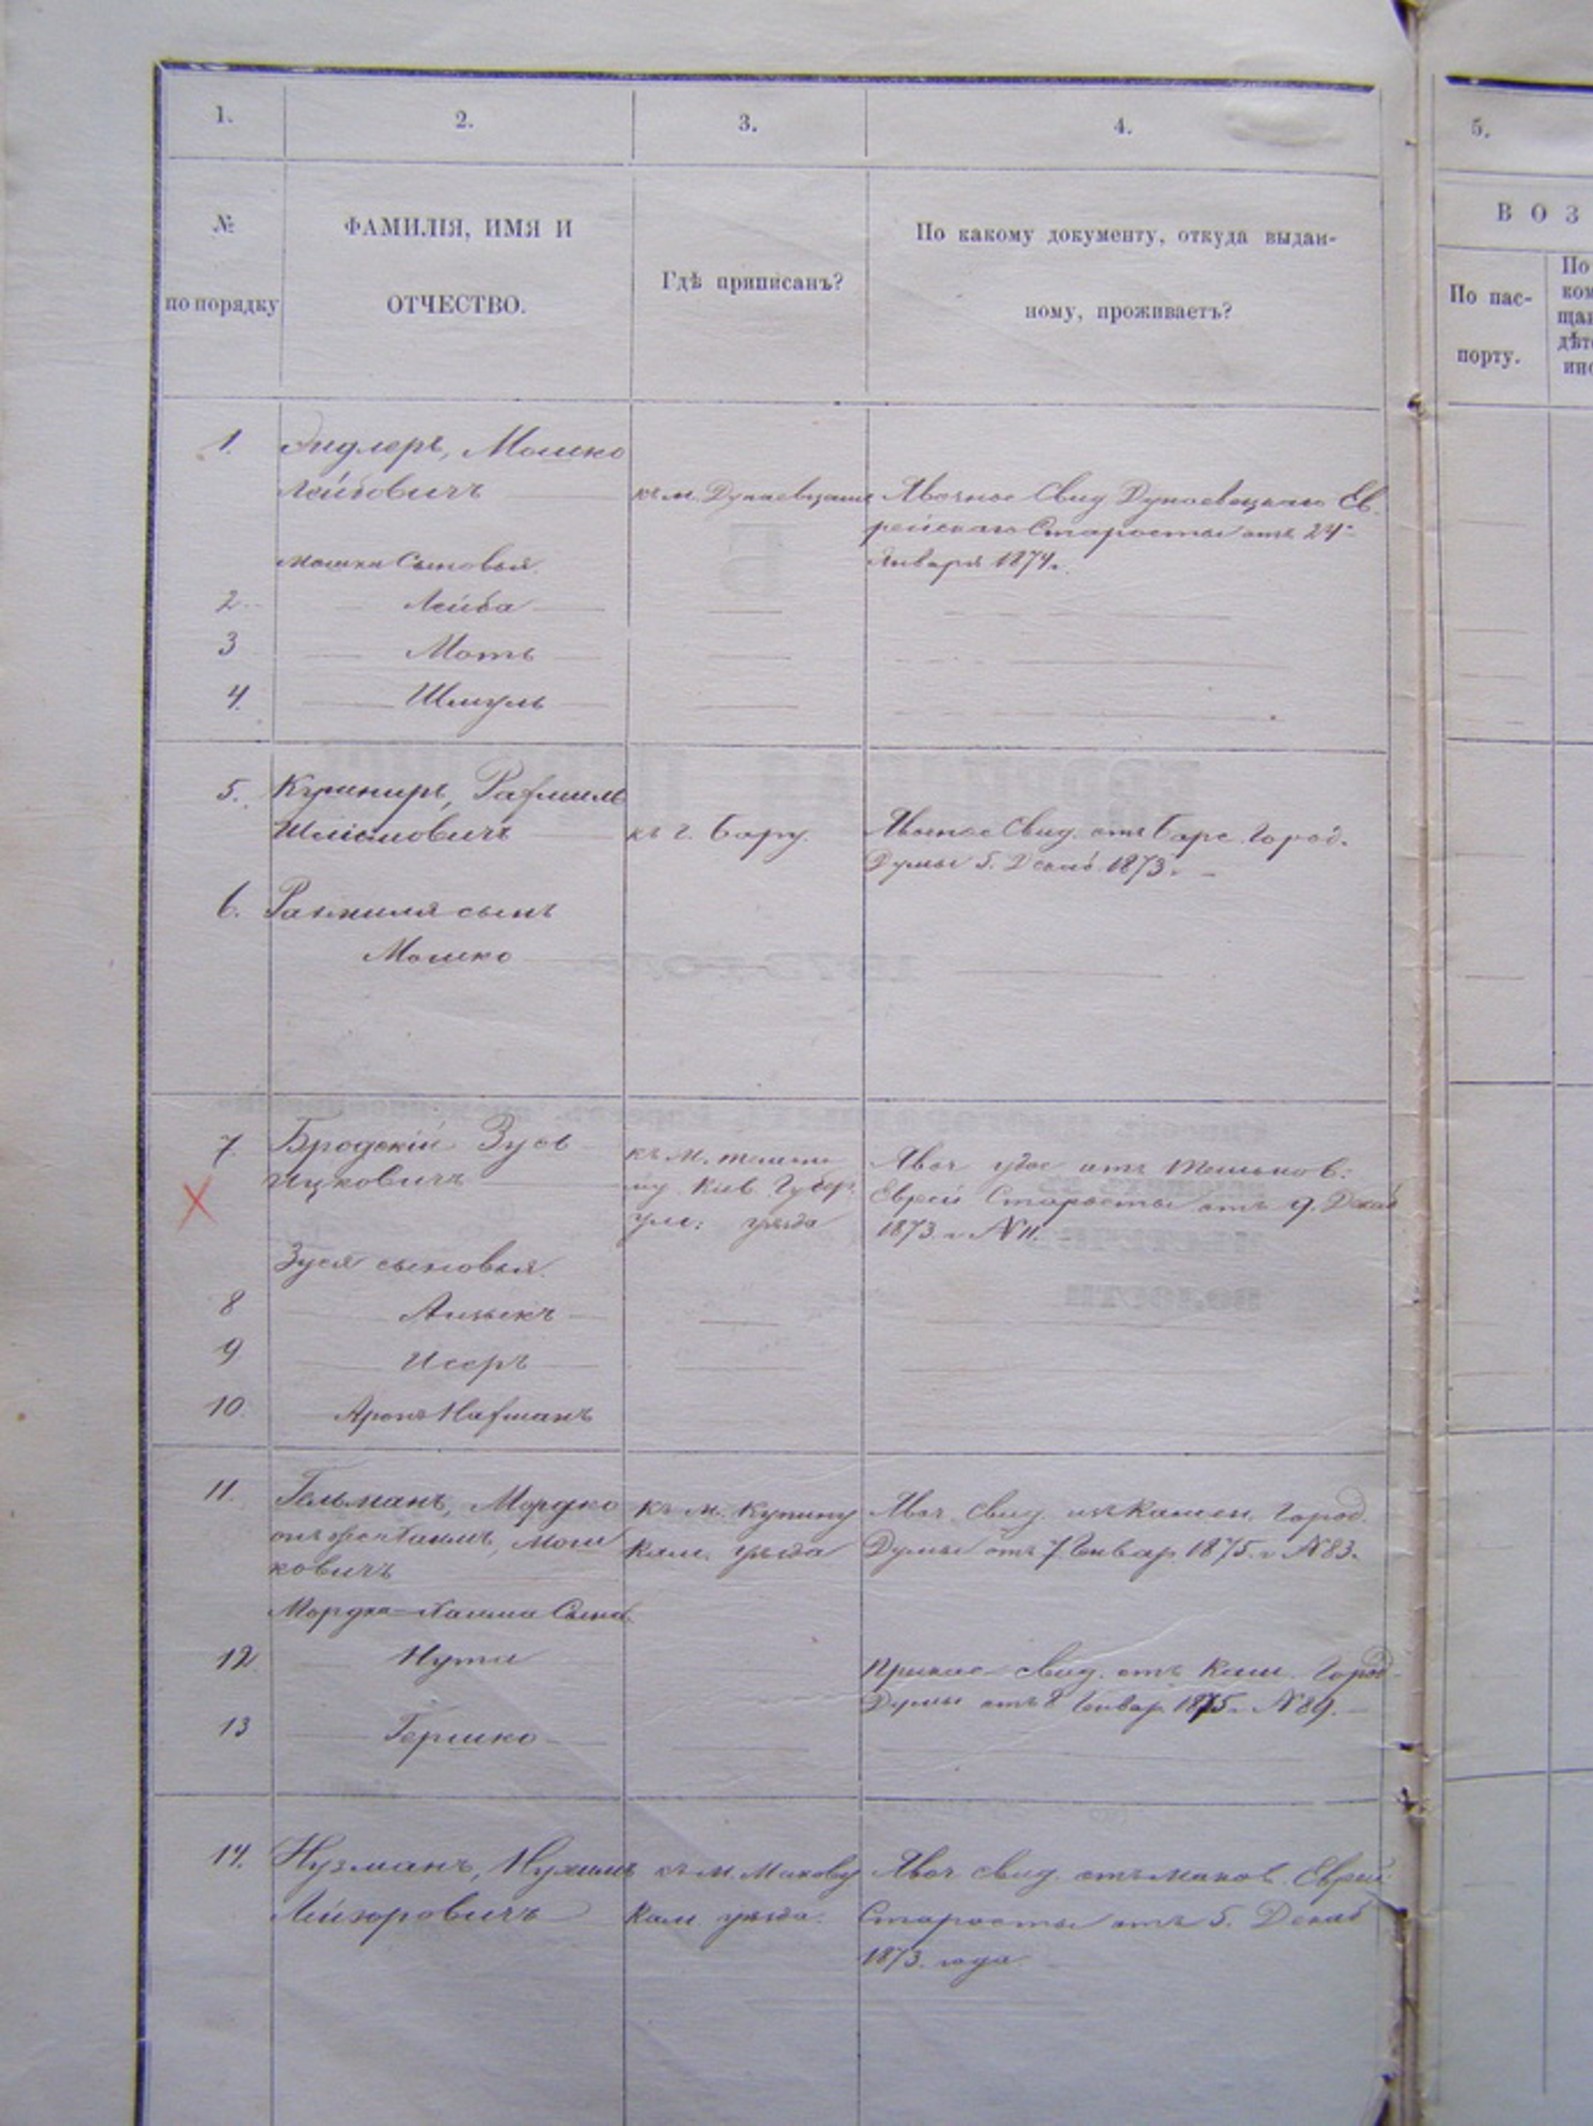 1.
2.
3.
4.
5.
№
по порядку
ФАМИЛІЯ, ИМЯ И
ОТЧЕСТВО.
Гдѣ приписанъ?
По какому документу, откуда выдан-
ному, проживаетъ?
В О З
По пас-
порту.
По
ком
щан
дѣт
ино
1. Эидлеръ, Мошко
Лейбовичъ къ м. Дунаевцамъ Явочное Свид Дунаевецкаго Ев-
рейскаго Старосты отъ 24
Января 1874 г.
Мошки Сыновья
2 Лейба
3 Мотъ
4. Шмуль
5. Кушниръ, Рахмиль
Шлiомовичъ къ г. Бару. Явочное Свид. отъ Барс. Город.
Думы 5. Декаб. 1873 г.
6. Рахмиля сынъ
Мошко
7 Бродскій Зусь
Ицковичъ
къ м.
ну Кiев. Губер.
уѣзда
Явоч отъ
Еврей Старосты отъ 9. Декаб
1873. г №11.
Зуся сыновья.
8
9 Исеръ
10. Аронъ Нахманъ
11. Гельманъ, Мордко къ м. Купину Явоч. Свид. Камен. Город.
онъ же Хаимъ, Мош Кам. уѣзда Думы отъ 7 Январ. 1875. г №83.
ковичъ
Мордка-Хаима Сына.
12. Нута
Свид. отъ Кам. Город.
Думы отъ 8 Январ 1875 г №89.
13 Гершко
14. Нузманъ, Нухимъ къ м. Макову Явоч свид. отъ Маков. Еврей
Лейзоровичъ Кам. уѣзда. Старосты отъ 5. Декаб
1873. года.